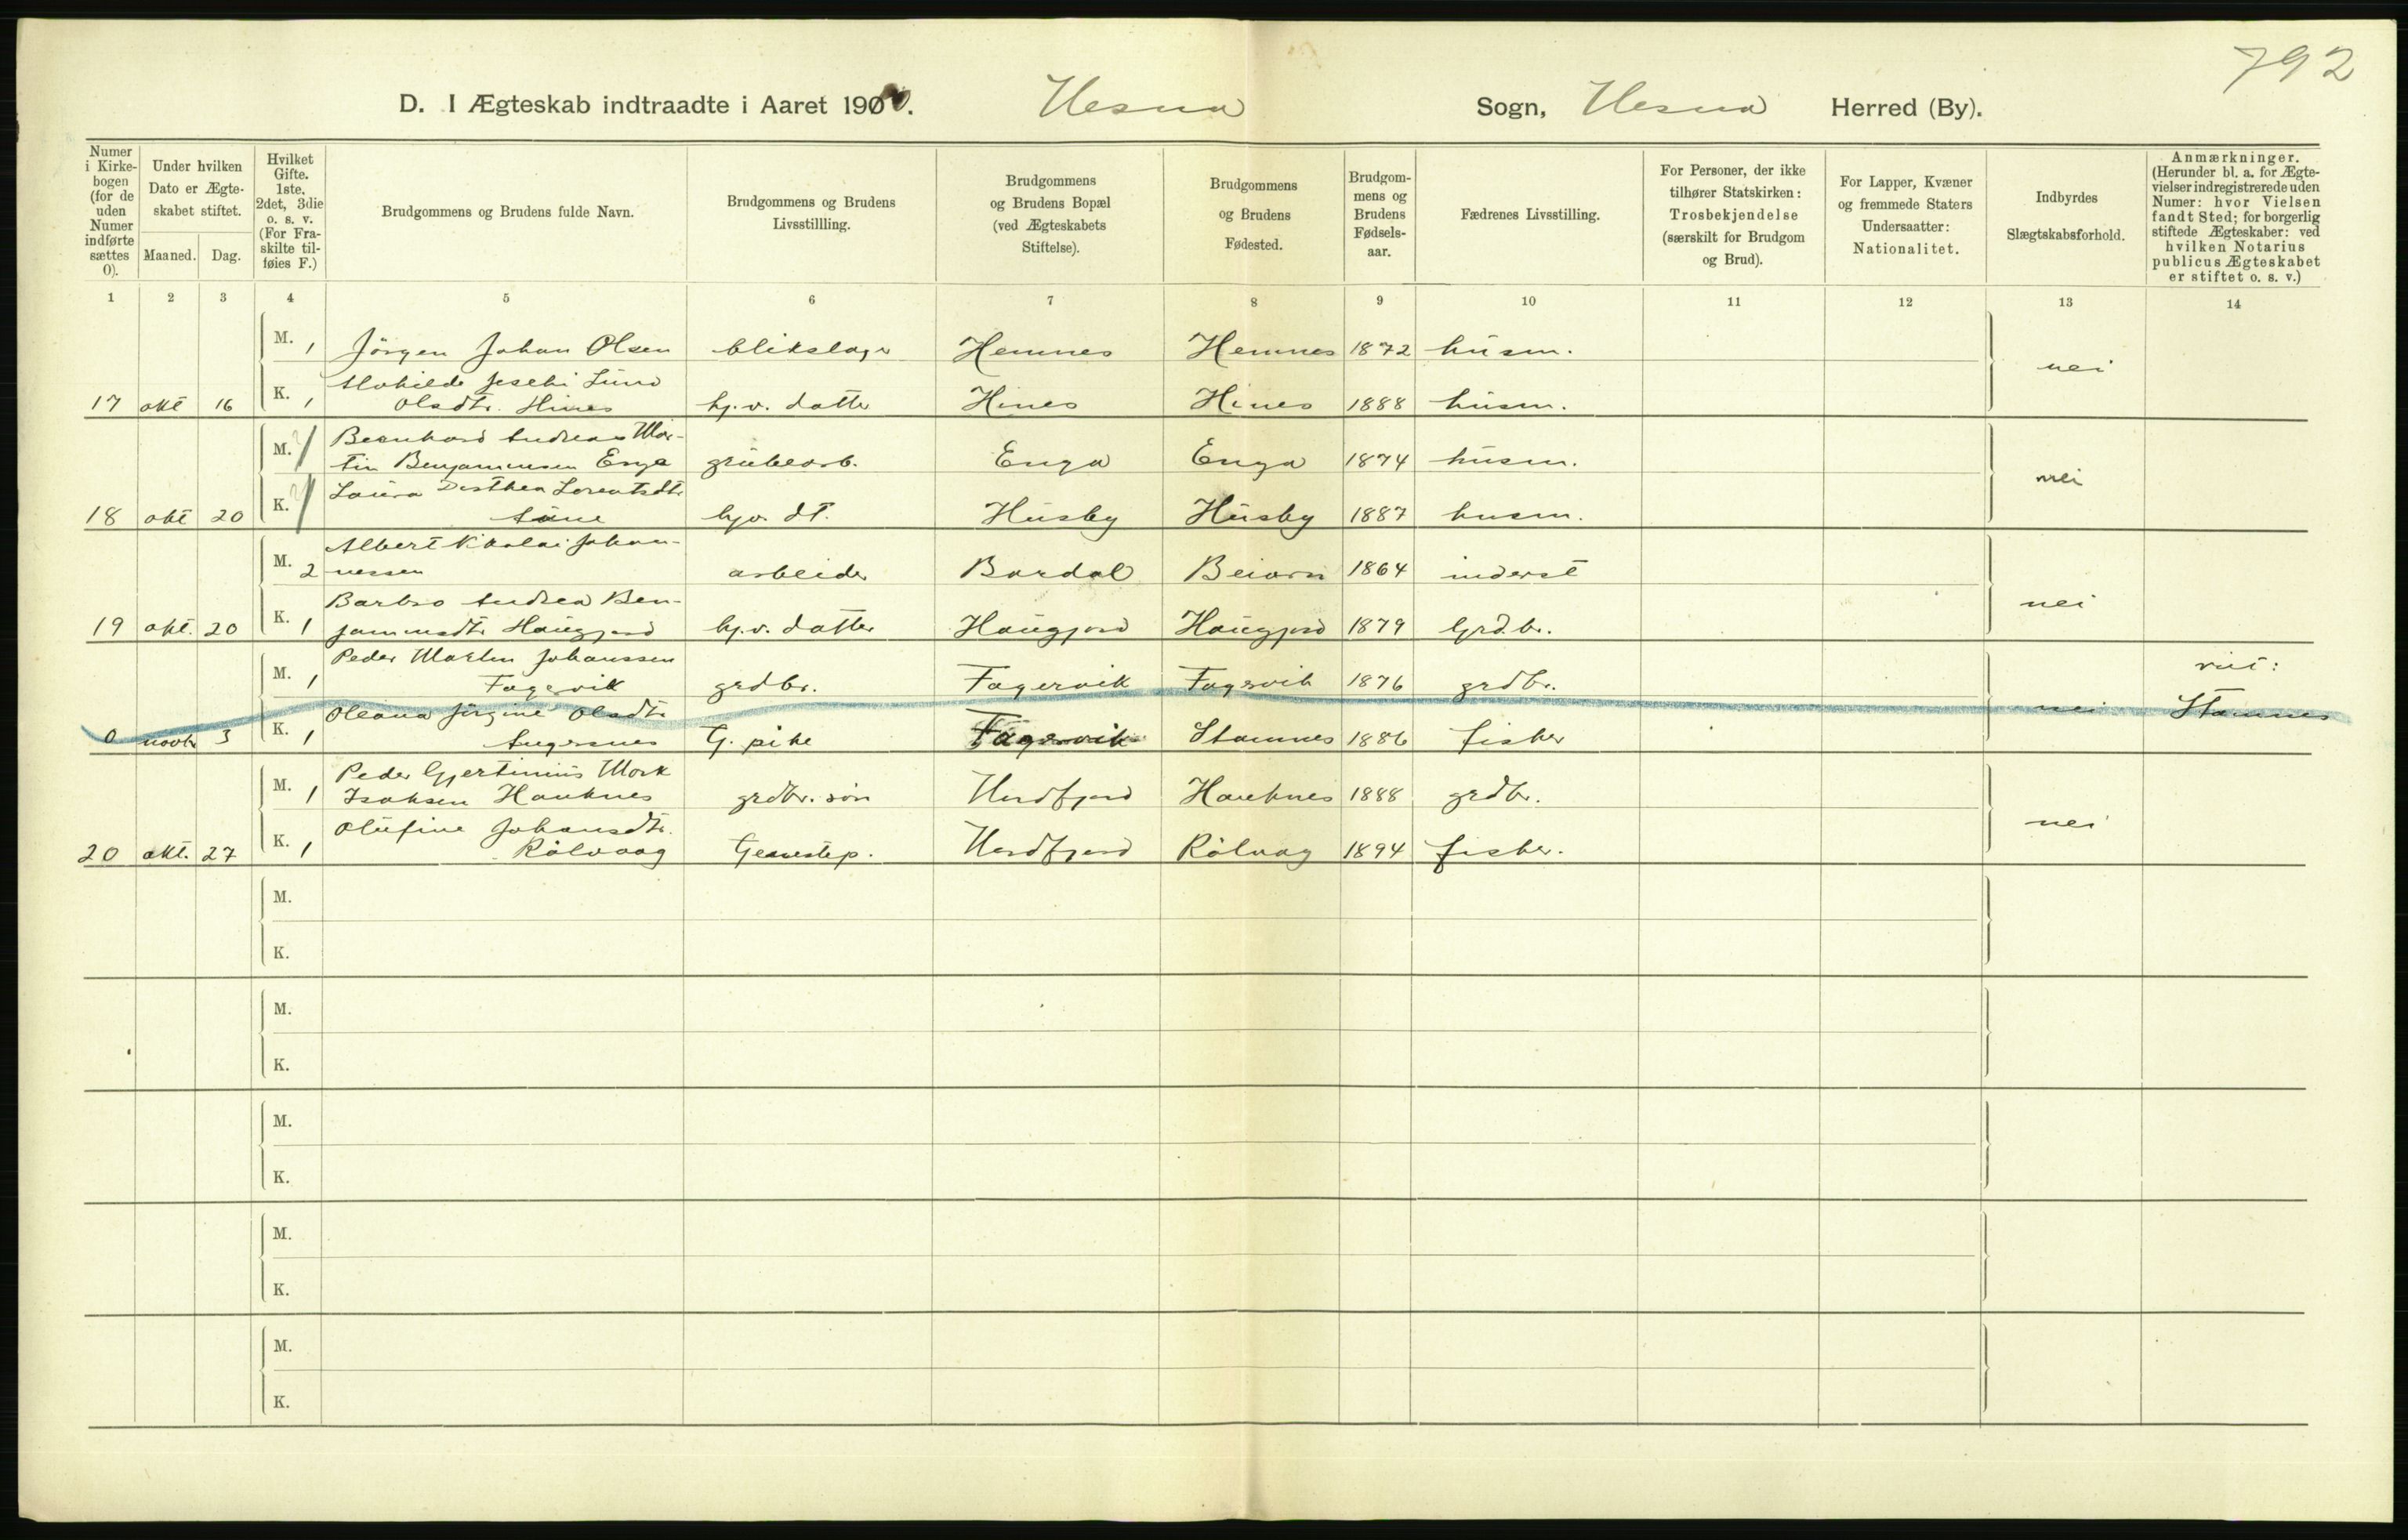 792
D. I Ægteskab indtraadte i Aaret 190 . Nesna Sogn, Nesna Herred (By).
Numer i Kirkebogen (for de uden Numer indførte sættes 0).
Under hvilken Dato er Ægteskabet stiftet.
Maaned. Dag.
Hvilket Gifte. 1ste, 2det, 3die o. s. v. (For Fraskilte tilføies F.)
Brudgommens og Brudens fulde Navn.
Brudgommens og Brudens Livsstillling.
Brudgommens og Brudens Bopæl (ved Ægteskabets Stiftelse).
Brudgommens og Brudens Fødested.
Brudgommens og Brudens Fødselsaar.
Fædrenes Livsstilling.
For Personer, der ikke tilhører Statskirken: Trosbekjendelse (særskilt for Brudgom og Brud).
For Lapper, Kvæner og fremmede Staters Undersaatter: Nationalitet.
Indbyrdes Slægtskabsforhold.
Anmærkninger. (Herunder bl. a. for Ægtevielser indregistrerede uden Numer: hvor Vielsen fandt Sted; for borgerlig stiftede Ægteskaber: ved hvilken Notarius publicus Ægteskabet er stiftet o. s. v.)
1 2 3 4 5 6 7 8 9 10 11 12 13 14
M. 1 Jörgen Johan Olsen blikslager Hemnes Hemnes 1872 husm.
nei
Lund
17 okt 16 K. 1 Olsdtr. Hines hj.v. datter Hines Hines 1888 husm.
Bernhard Andreas Mar-
M. 1 tin Benjaminsen Enga grubearb. Enga Enga 1874 husm.
nei
Laura Dorthea Lorentsdtr
18 okt 20 K. 1 hjv. dt. Husby Husby 1887 husm.
Albert Nikolai Johan-
M. 2 nessen arbeider Bardal Beiarn 1864 inderst
nei
Barbro Andrea Ben-
19 okt. 20 K. 1 jaminsdtr Haugjord hj.v. datter Haugjord Haugjord 1879 Grdbr.
Peder Martin Johanssen
M. 1 Fagervik grdbr. Fagervik Fagervik 1876 grdbr. viet:
nei Stamnes
Oleana Jörgine Olsdtr
0 novbr 3 K. 1 Angersnes G. pike Fagervik Stamnes 1886 fisker
Peder Gjertinius Mark
M. 1 Isaksen Hauknes grdbr. sön Nordfjord Hauknes 1888 grdbr.
nei
Olufine Johansdtr.
20 okt. 27 K. 1 Rölvaag Tjenestep. Nordfjord Rölvag 1894 fisker.
M.
K.
M.
K.
M.
K.
M.
K.
M.
K.